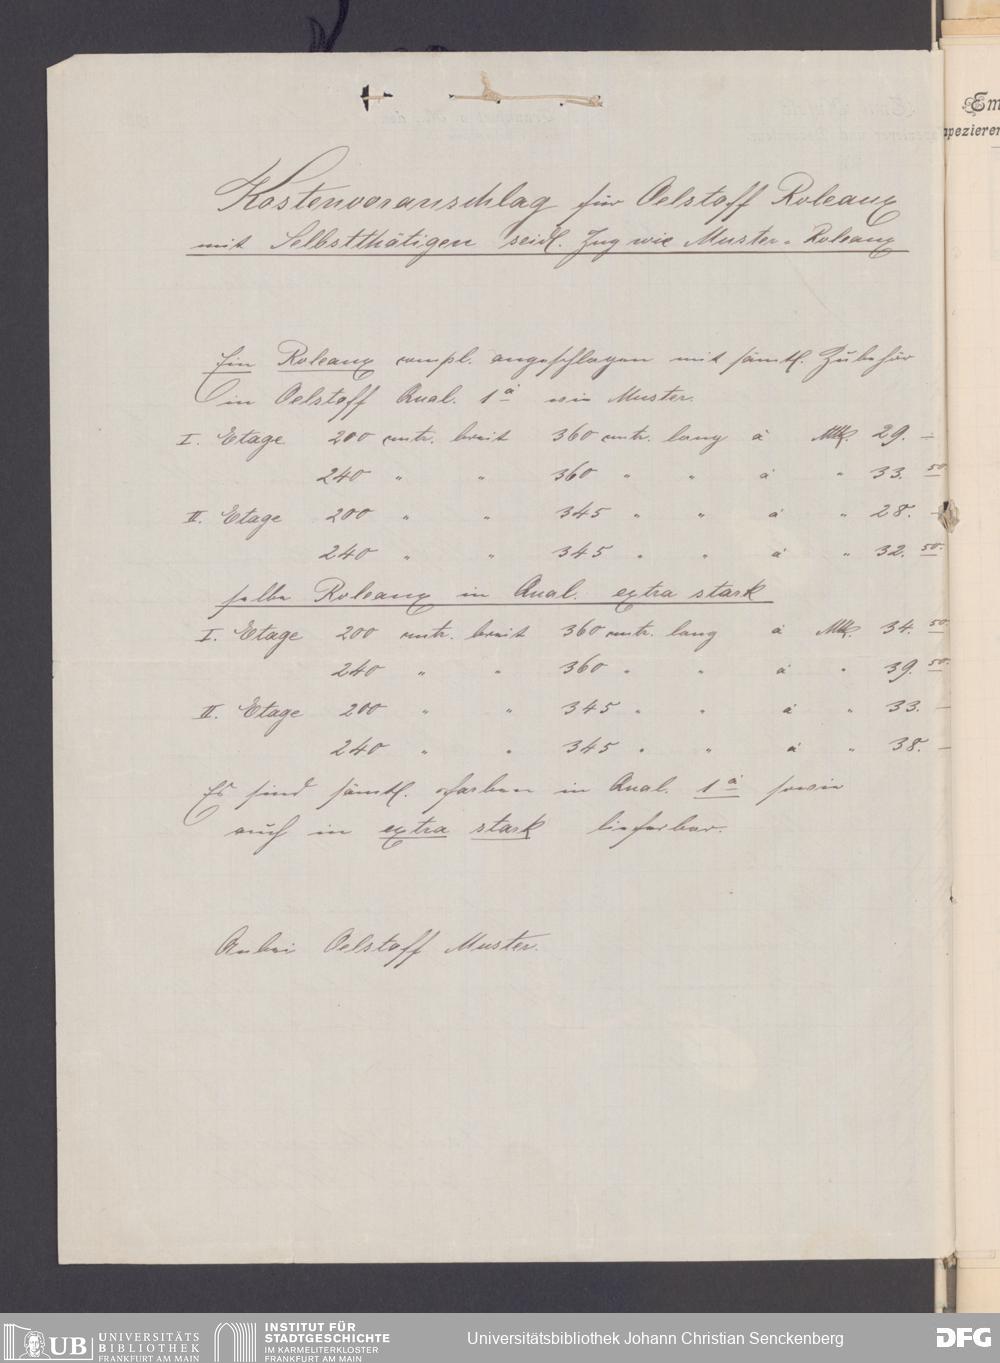 Kostenvoranschlag für Oelstoff Roleaux
mit Selbstthätigen seidl. Zug wie Muster-Roleaux
Ein Roleaux compl. angeschlagen mit sämtl. Zubehör
in Oelstoff Qual. 1ª wie Muster.
I. Etage 200 cmtr. breit 360 cmtr. lang à Mk. 29. —
240 " " 360 " " à " 33. 50
II. Etage 200 " " 345 " " à " 28. —
240 " " 345 " " à " 32. 50.
selbe Roleaux in Qual. extra stark
I. Etage 200 cmtr. breit 360 cmtr. lang à Mk. 34. 50
240 " " 360 " " à " 39. 50.
II. Etage 200 " " 345 " " à " 33. —
240 " " 345 " " à " 38. —
Es sind sämtl. Farben in Qual. 1ª sowie
auch in extra stark lieferbar.
Anbei Oelstoff Muster.
Em
apezierer
UB UNIVERSITÄTS
BIBLIOTHEK
FRANKFURT AM MAIN
INSTITUT FÜR
STADTGESCHICHTE
IM KARMELITERKLOSTER
FRANKFURT AM MAIN
Universitätsbibliothek Johann Christian Senckenberg
DFG